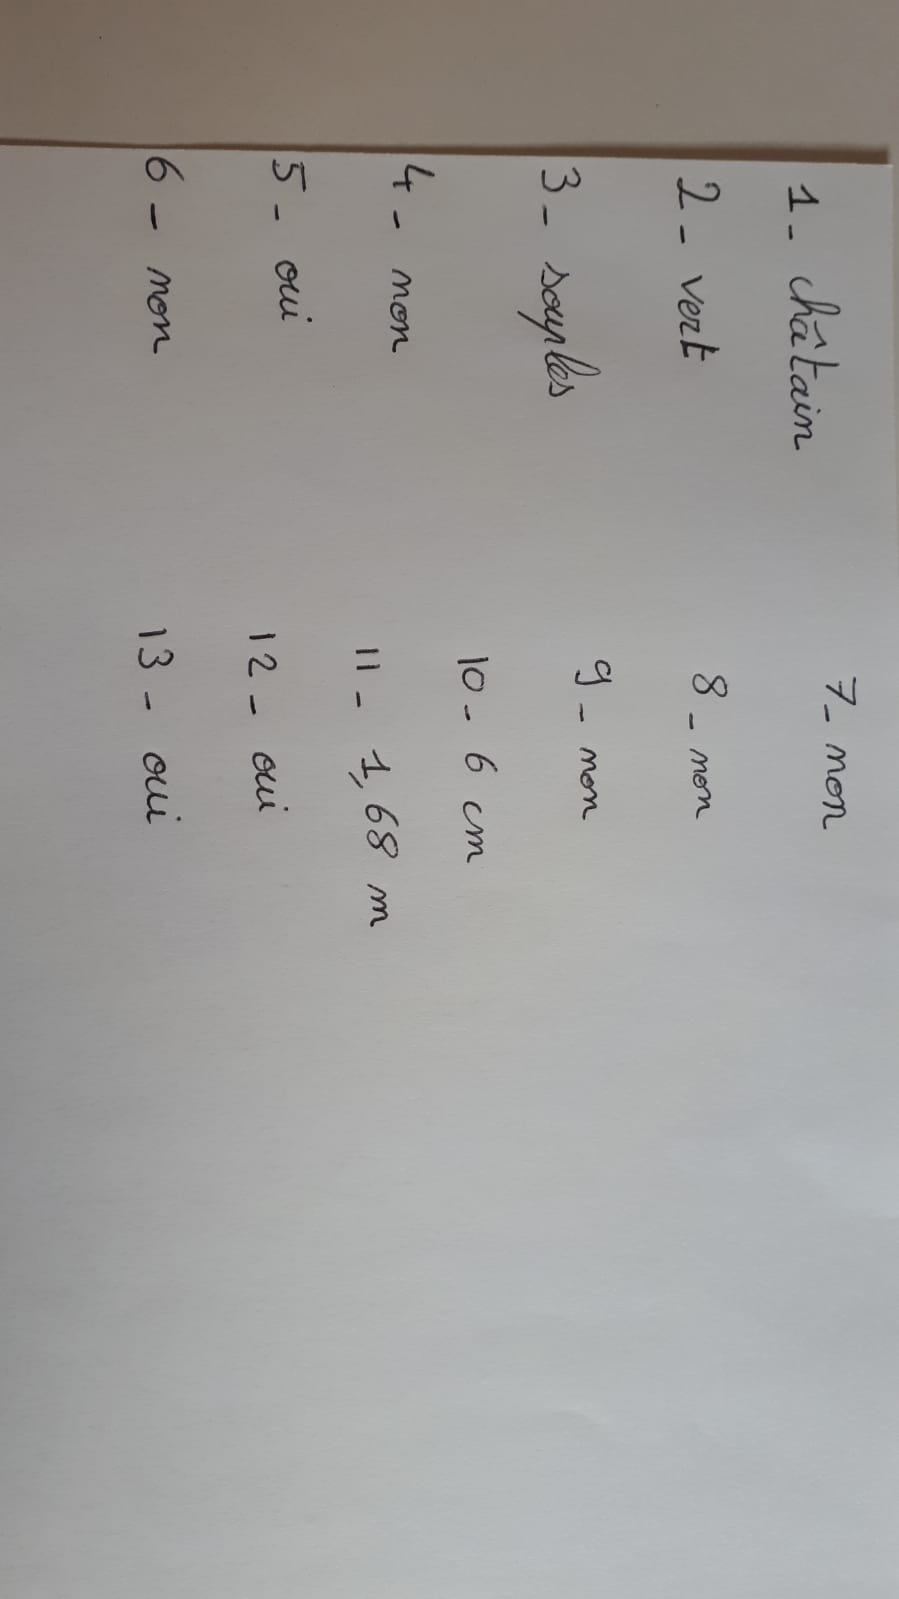 1- châtain
2- vert
3- souples
4- non
5- oui
6- non
7- non
8- non
9- non
10- 6 cm
11- 1,68 m
12- oui
13- oui